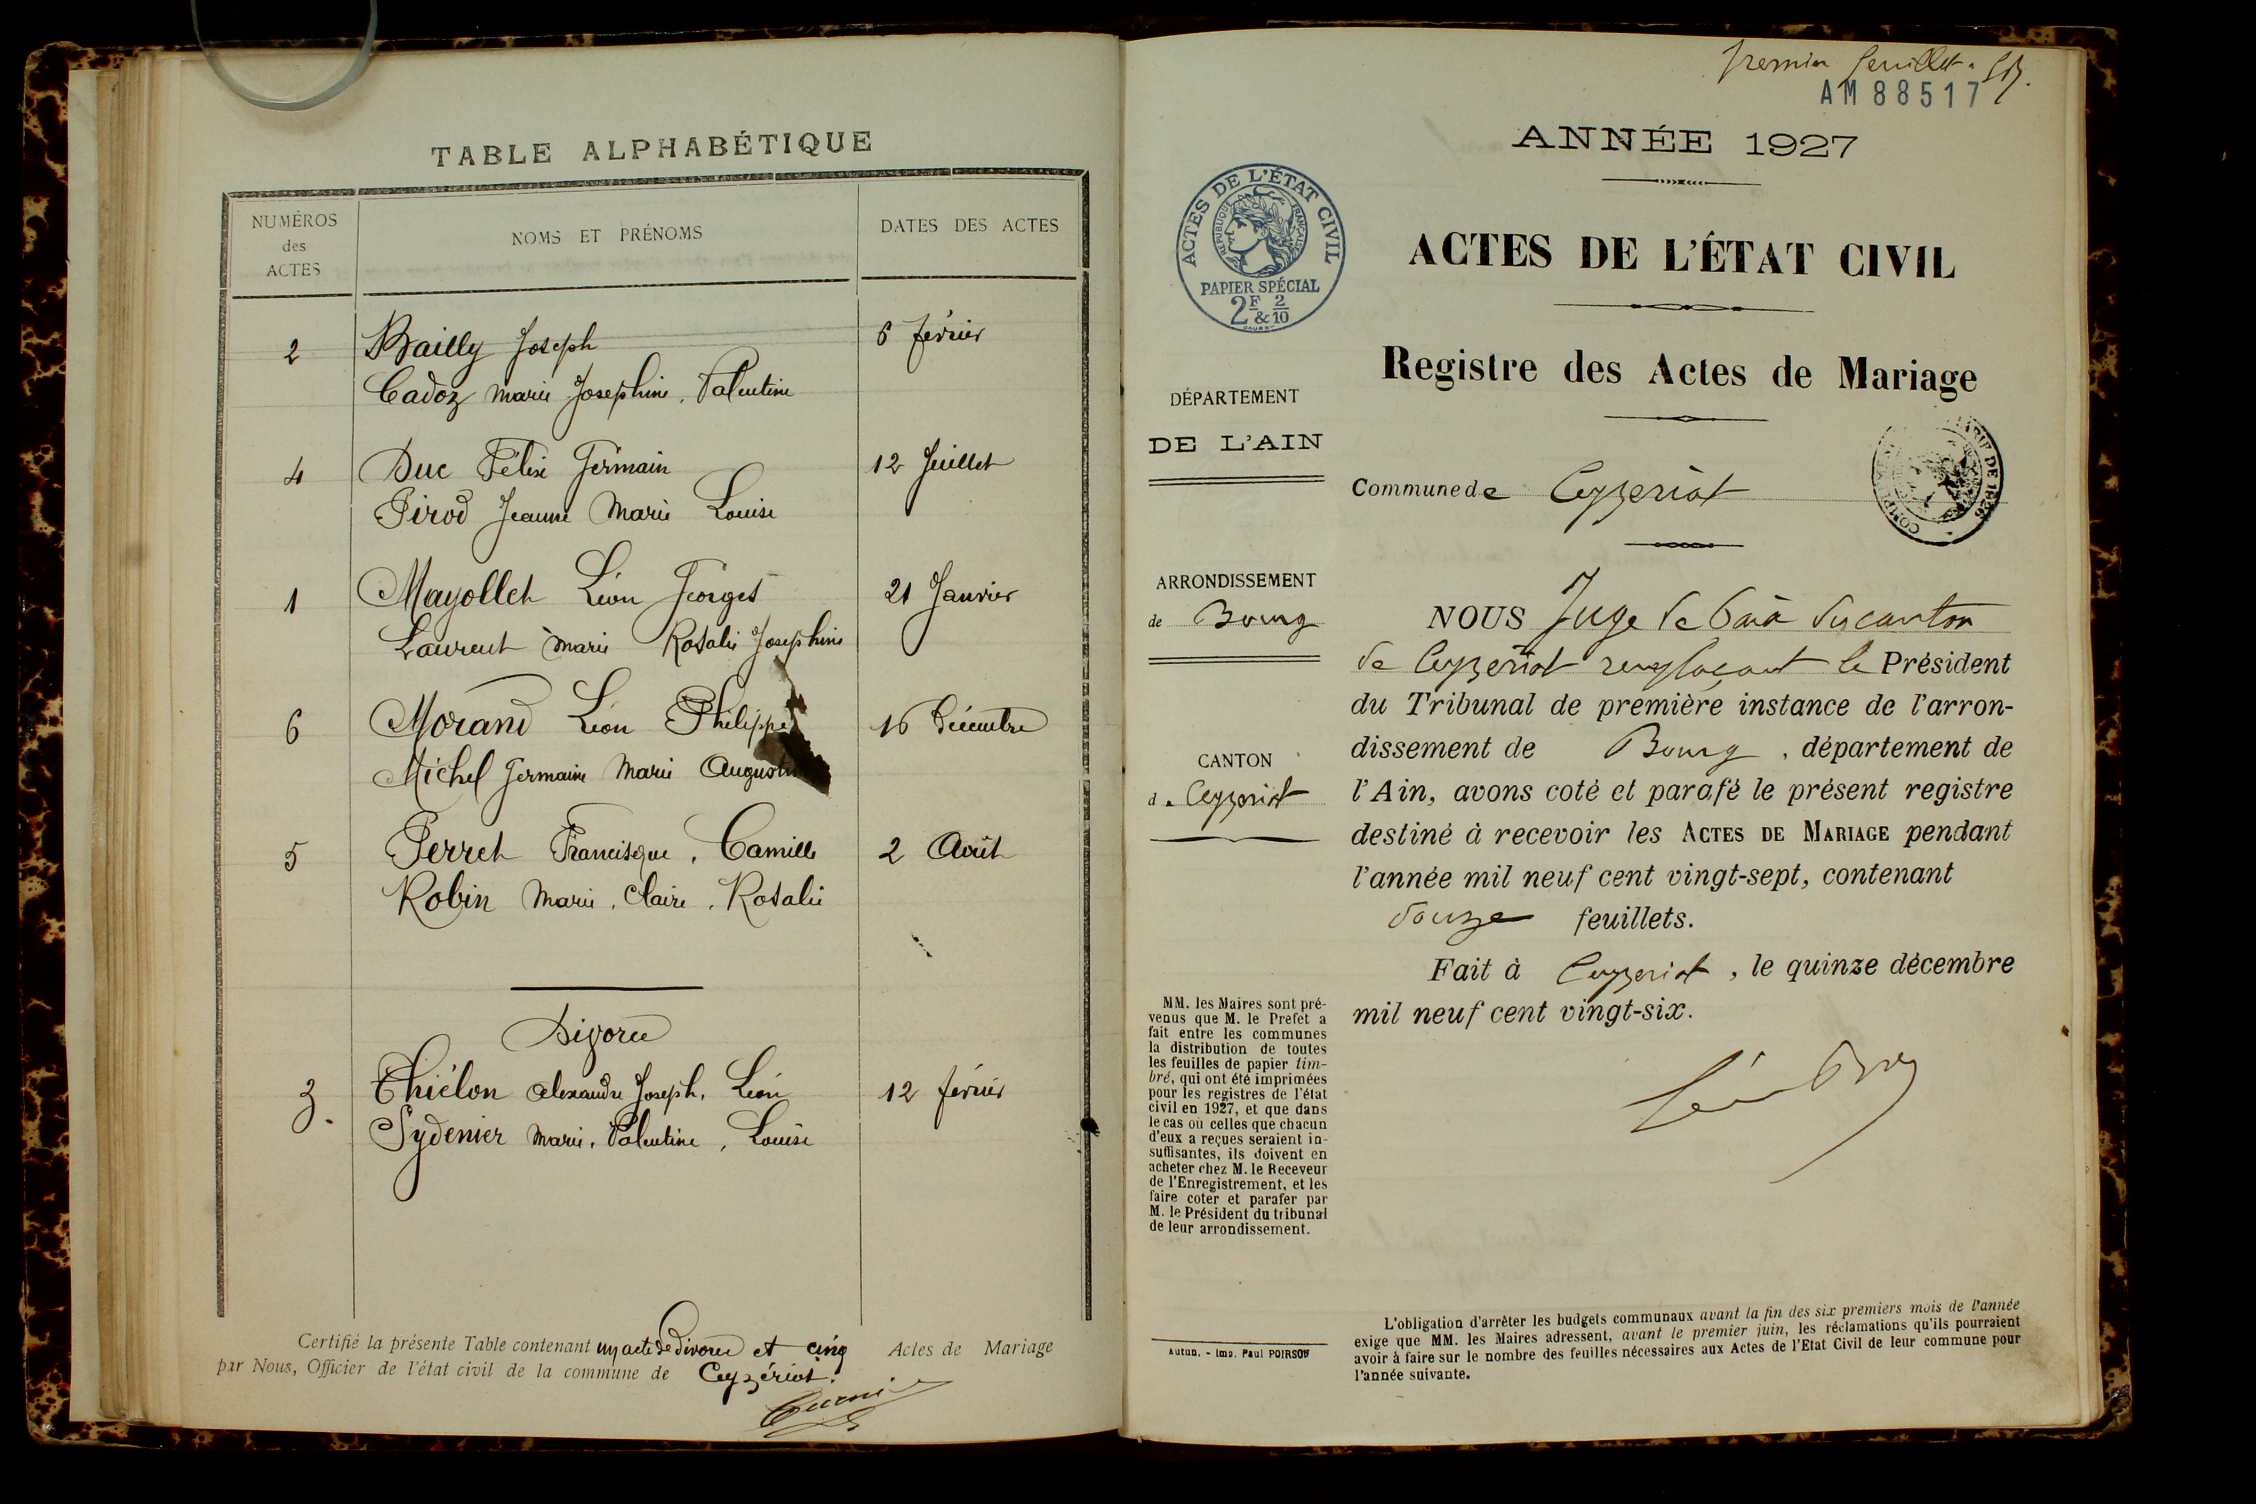 TABLE ALPHABÉTIQUE
NUMÉROS
des
ACTES
NOMS ET PRÉNOMS
DATES DES ACTES
2 Bailly Joseph 6 février
Cadoz Marie Joséphine, Valentine
4 Duc Félix Germain 12 Juillet
Pirod Jeanne Marie Louise
1 Mayollet Léon Georges 21 Janvier
Laurent Marie Rosalie Joséphine
6 Morand Léon Philippe 16 Décembre
Michel Germaine Marie
5 Perret Francisque, Camille 2 Août
Robin Marie, Claire, Rosalie
Divorce
3. Thiélon Alexandre Joseph, Léon 12 février
Sydenier Marie, Valentine, Louise
Certifié la présente Table contenant un acte de Divorce et cinq Actes de Mariage
par Nous, Officier de l'état civil de la commune de Ceyzériat.
premier feuillet.
AM88517
ANNÉE 1927
ACTES DE L'ÉTAT CIVIL
RÉPUBLIQUE FRANÇAISE
PAPIER SPÉCIAL
2F & 2/10
ACTES DE L'ÉTAT CIVIL
Registre des Actes de Mariage
DÉPARTEMENT
DE L'AIN
Commune de Ceyzeriat
ARRONDISSEMENT
de Bourg
CANTON
de Ceyzeriat
NOUS Juge de Paix du canton
de Ceyzeriat remplaçant le Président
du Tribunal de première instance de l'arron-
dissement de Bourg, département de
l'Ain, avons coté et parafé le présent registre
destiné à recevoir les ACTES DE MARIAGE pendant
l'année mil neuf cent vingt-sept, contenant
douze feuillets.
Fait à Ceyzeriat, le quinze décembre
mil neuf cent vingt-six.
MM. les Maires sont pré-
venus que M. le Prefet a
fait entre les communes
la distribution de toutes
les feuilles de papier tim-
bré, qui ont été imprimées
pour les registres de l'état
civil en 1927, et que dans
le cas où celles que chacun
d'eux a reçues seraient in-
suffisantes, ils doivent en
acheter chez M. le Receveur
de l'Enregistrement, et les
faire coter et parafer par
M. le Président du tribunal
de leur arrondissement.
Autun. - Imp. Paul POIRSON
L'obligation d'arrêter les budgets communaux avant la fin des six premiers mois de l'année
exige que MM. les Maires adressent, avant le premier juin, les réclamations qu'ils pourraient
avoir à faire sur le nombre des feuilles nécessaires aux Actes de l'Etat Civil de leur commune pour
l'année suivante.